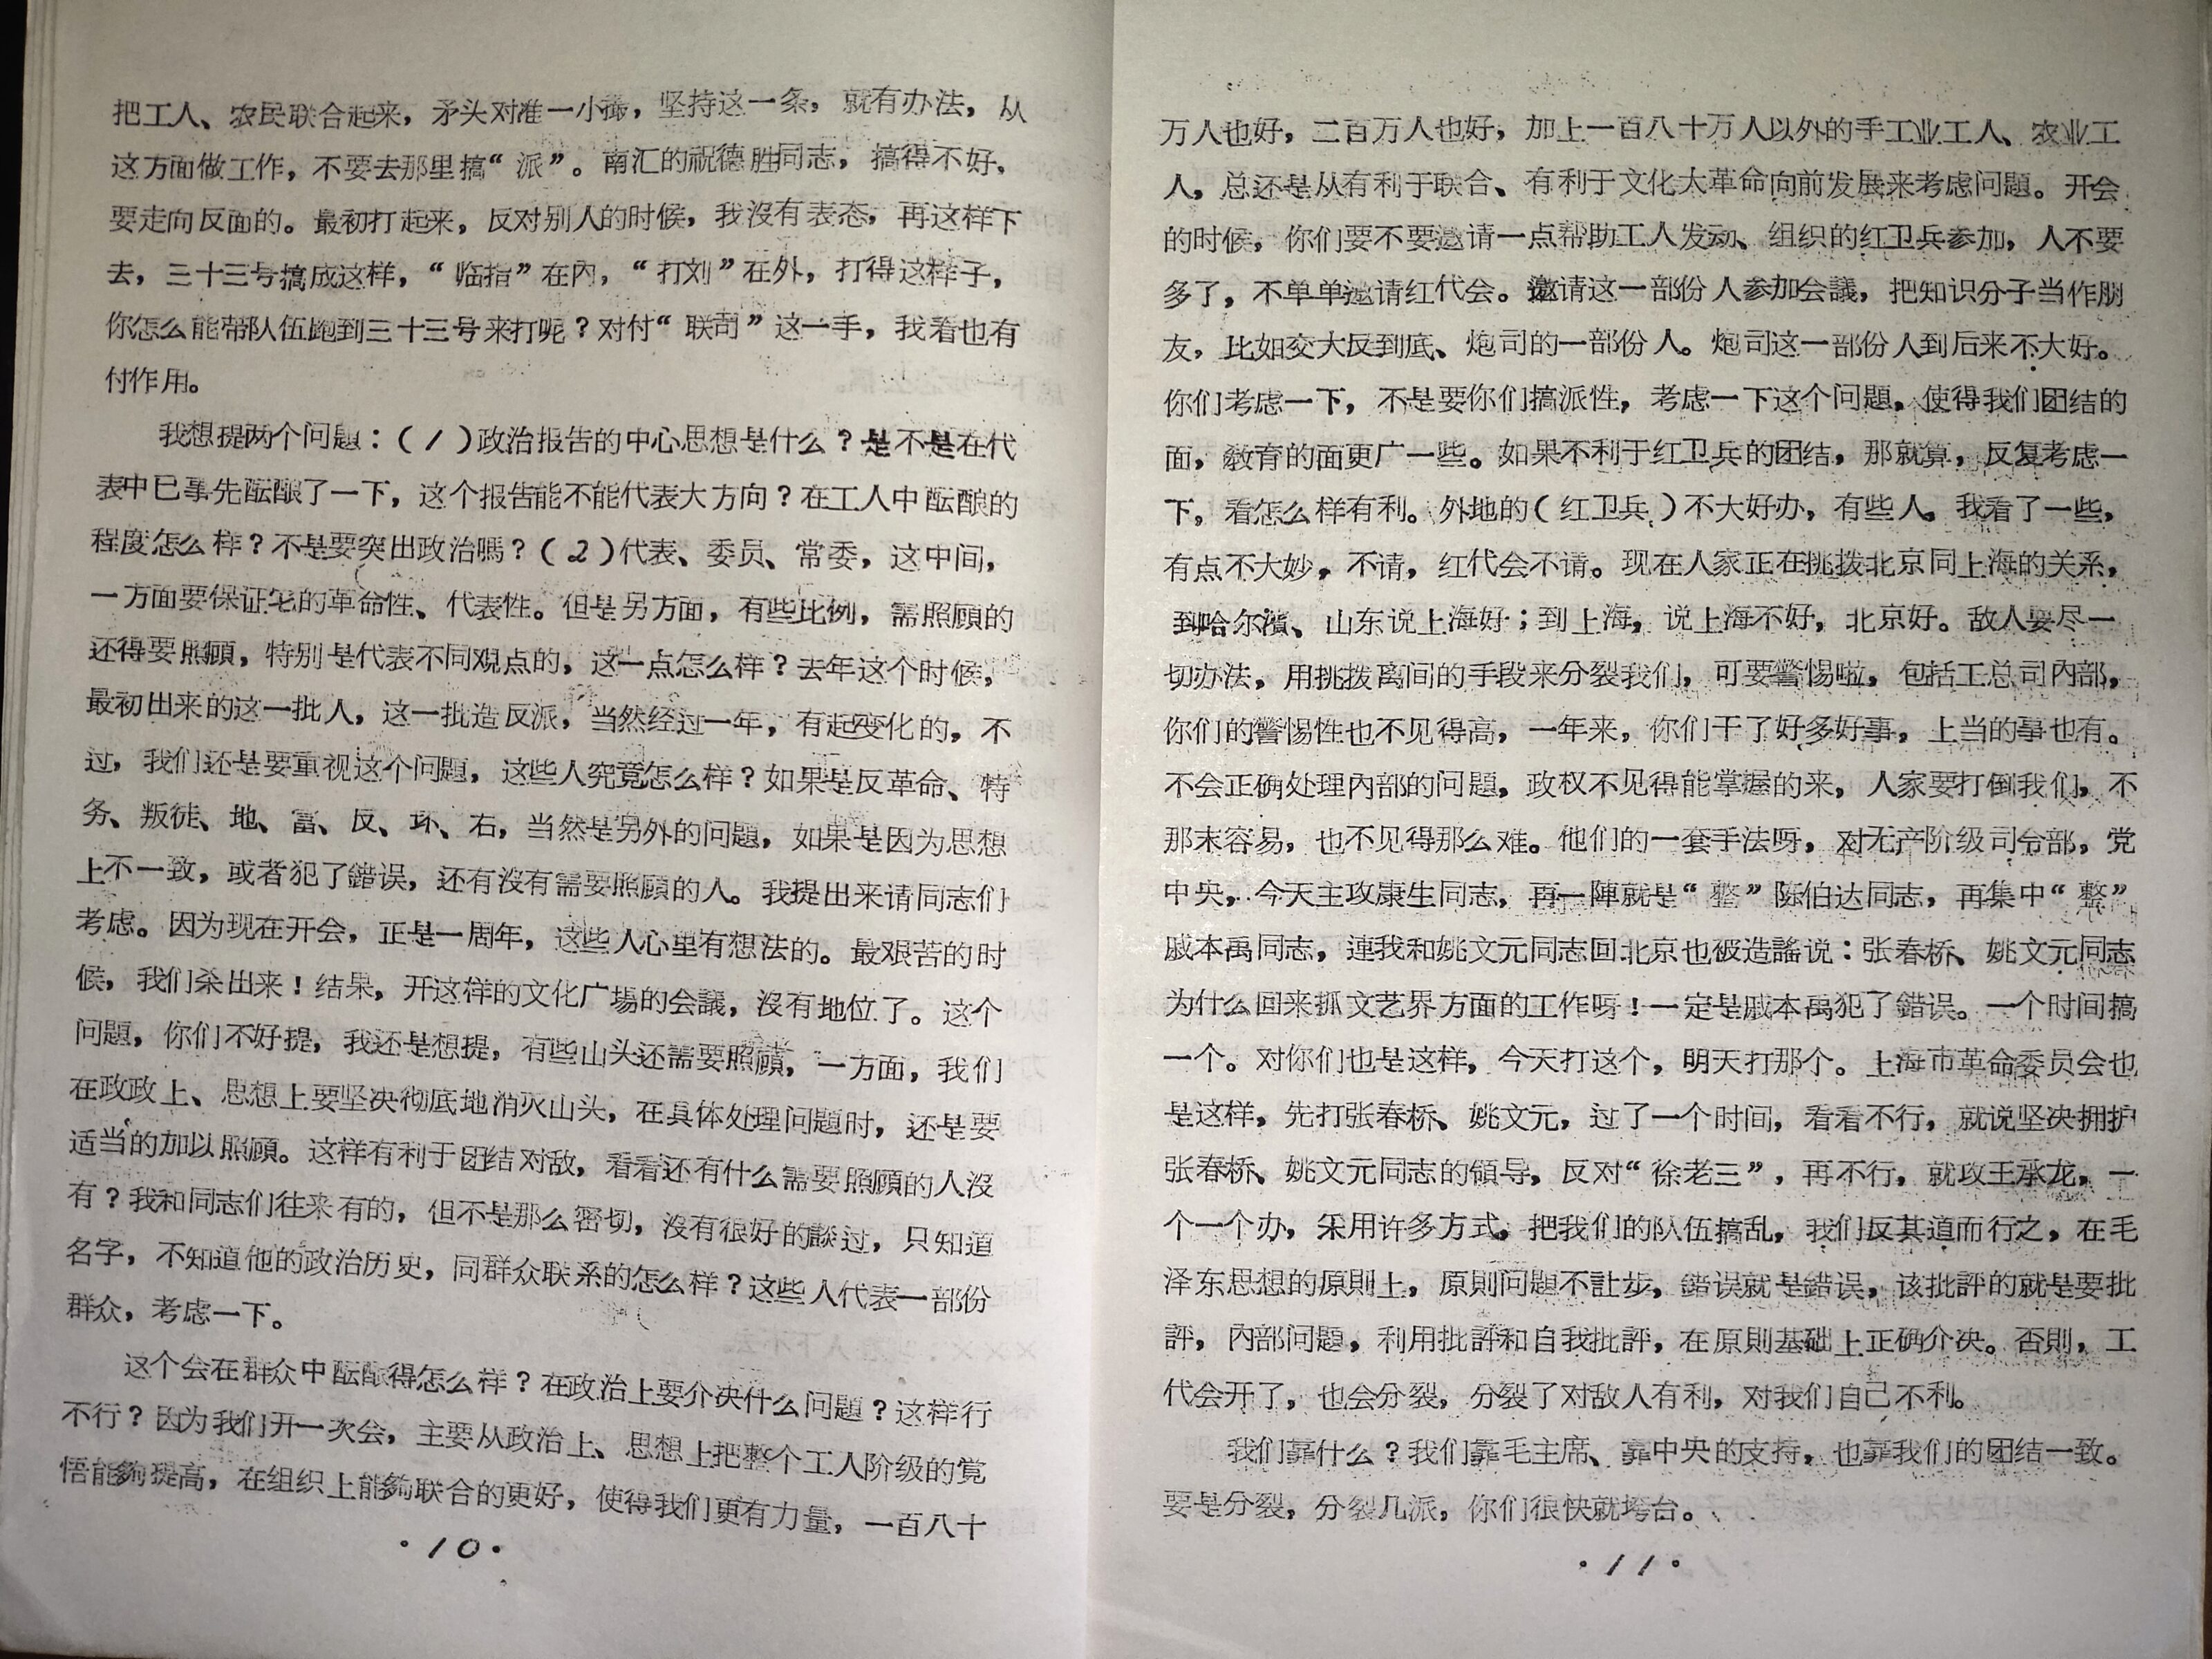 把工人、农民联合起来，矛头对准一小撮，坚持这一条，就有办法，从
这方面做工作，不要去那里搞“派”。南汇的祝德胜同志，搞得不好，
要走向反面的。最初打起来，反对别人的时候，我沒有表态，再这样下
去，三十三号搞成这样，“临指”在内，“打刘”在外，打得这样子，
你怎么能带队伍跑到三十三号来打呢？对付“联司”这一手，我看也有
付作用。
我想提两个问題：(1)政治报告的中心思想是什么？是不是在代
表中已事先酝酿了一下，这个报告能不能代表大方向？在工人中酝酿的
程度怎么样？不是要突出政治嗎？(2)代表、委员、常委，这中间，
一方面要保证它的革命性、代表性。但是另方面，有些比例，需照顧的
还得要照顧，特别是代表不同观点的，这一点怎么样？去年这个时候，
最初出来的这一批人，这一批造反派，当然经过一年，有起变化的，不
过，我们还是要重视这个问題，这些人究竟怎么样？如果是反革命、特
务、叛徒、地、富、反、坏、右，当然是另外的问題，如果是因为思想
上不一致，或者犯了錯误，还有沒有需要照顧的人。我提出来请同志们
考虑。因为现在开会，正是一周年，这些人心里有想法的。最艰苦的时
候，我们杀出来！结果，开这样的文化广場的会議，沒有地位了。这个
问題，你们不好提，我还是想提，有些山头还需要照顧，一方面，我们
在政政上、思想上要坚决彻底地消灭山头，在具体处理问題时，还是要
适当的加以照顧。这样有利于团结对敌，看看还有什么需要照顧的人沒
有？我和同志们往来有的，但不是那么密切，沒有很好的談过，只知道
名字，不知道他的政治历史，同群众联系的怎么样？这些人代表一部份
群众，考虑一下。
这个会在群众中酝酿得怎么样？在政治上要介决什么问題？这样行
不行？因为我们开一次会，主要从政治上、思想上把整个工人阶级的觉
悟能夠提高，在组织上能夠联合的更好，使得我们更有力量，一百八十
·10·
万人也好，二百万人也好，加上一百八十万人以外的手工业工人、农业工
人，总还是从有利于联合、有利于文化大革命向前发展来考虑问題。开会
的时候，你们要不要邀请一点帮助工人发动、组织的红卫兵参加，人不要
多了，不单单邀请红代会。邀请这一部份人参加会議，把知识分子当作朋
友，比如交大反到底、炮司的一部份人。炮司这一部份人到后来不大好。
你们考虑一下，不是要你们搞派性，考虑一下这个问題，使得我们团结的
面，教育的面更广一些。如果不利于红卫兵的团结，那就算，反复考虑一
下，看怎么样有利。外地的(红卫兵)不大好办，有些人。我看了一些，
有点不大妙，不请，红代会不请。现在人家正在挑拨北京同上海的关系，
到哈尔濱、山东说上海好；到上海，说上海不好，北京好。敌人要尽一
切办法，用挑拨离间的手段来分裂我们，可要警惕啦，包括工总司内部，
你们的警惕性也不见得高，一年来，你们干了好多好事，上当的事也有。
不会正确处理内部的问題，政权不见得能掌握的来，人家要打倒我们，不
那末容易，也不见得那么难。他们的一套手法呀，对无产阶级司令部，党
中央，今天主攻康生同志，再一陣就是“整”陈伯达同志，再集中“整”
戚本禹同志，連我和姚文元同志回北京也被造謠说：张春桥、姚文元同志
为什么回来抓文艺界方面的工作呀！一定是戚本禹犯了錯误。一个时间搞
一个。对你们也是这样，今天打这个，明天打那个。上海市革命委员会也
是这样，先打张春桥、姚文元，过了一个时间，看看不行，就说坚决拥护
张春桥、姚文元同志的領导，反对“徐老三”，再不行，就攻王承龙，一
个一个办，采用许多方式，把我们的队伍搞乱，我们反其道而行之，在毛
泽东思想的原則上，原則问題不让步，錯误就是錯误，该批評的就是要批
評，内部问題，利用批評和自我批評，在原則基础上正确介决。否則，工
代会开了，也会分裂，分裂了对敌人有利，对我们自己不利。
我们靠什么？我们靠毛主席、靠中央的支持，也靠我们的团结一致。
要是分裂，分裂几派，你们很快就垮台。
·11·